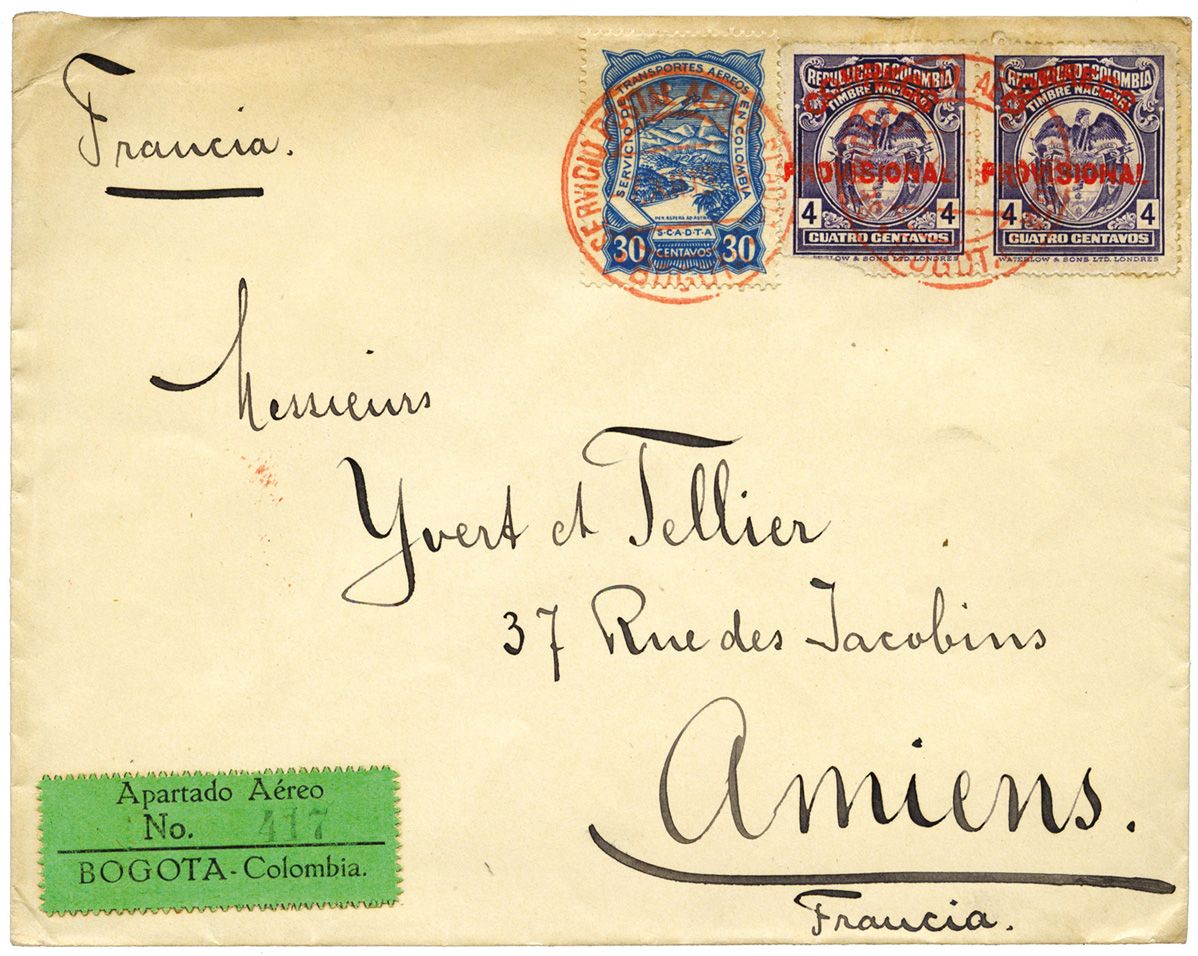 Francia.
SERVICIO DE TRANSPORTES AEREOS EN COLOMBIA
PER ASPERA AD ASTRA
S·C·A·D·T·A
30 CENTAVOS 30
REPUBLICA DE COLOMBIA
TIMBRE NACIONAL
CORREOS
PROVISIONAL
4 4
CUATRO CENTAVOS
WATERLOW & SONS LTD. LONDRES
REPUBLICA DE COLOMBIA
TIMBRE NACIONAL
CORREOS
PROVISIONAL
4 4
CUATRO CENTAVOS
WATERLOW & SONS LTD. LONDRES
SERVICIO
BOGOTA
BOGOTA
Messieurs
Yvert et Tellier
37 Rue des Jacobins
Amiens.
Francia.
Apartado Aéreo
No. 417
BOGOTA - Colombia.